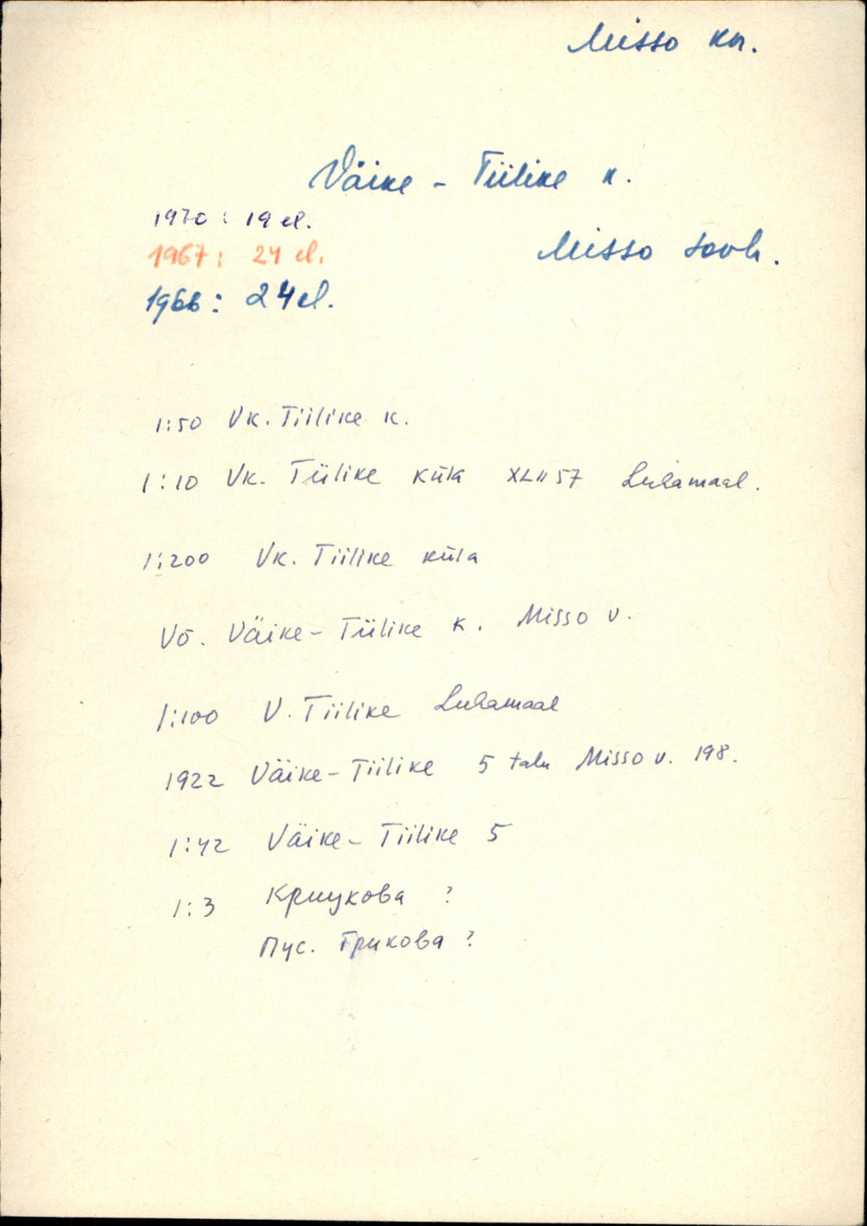 Misso kn.
Väike - Tiilike k.
1970 : 19 el.
1967 : 24 el.
Misso sovh.
1966 : 24 el.
1:50 Vk. Tiilike k.
1:10 Vk. Tiilike küla XLII 57 Luhamaal.
1:200 Vk. Tiilike küla
Võ. Väike-Tiilike k. Misso v.
1:100 V. Tiilike Luhamaal
1922 Väike-Tiilike 5 talu Misso v. 198.
1:42 Väike-Tiilike 5
1:3 Криукова ?
Пус. Грикова ?